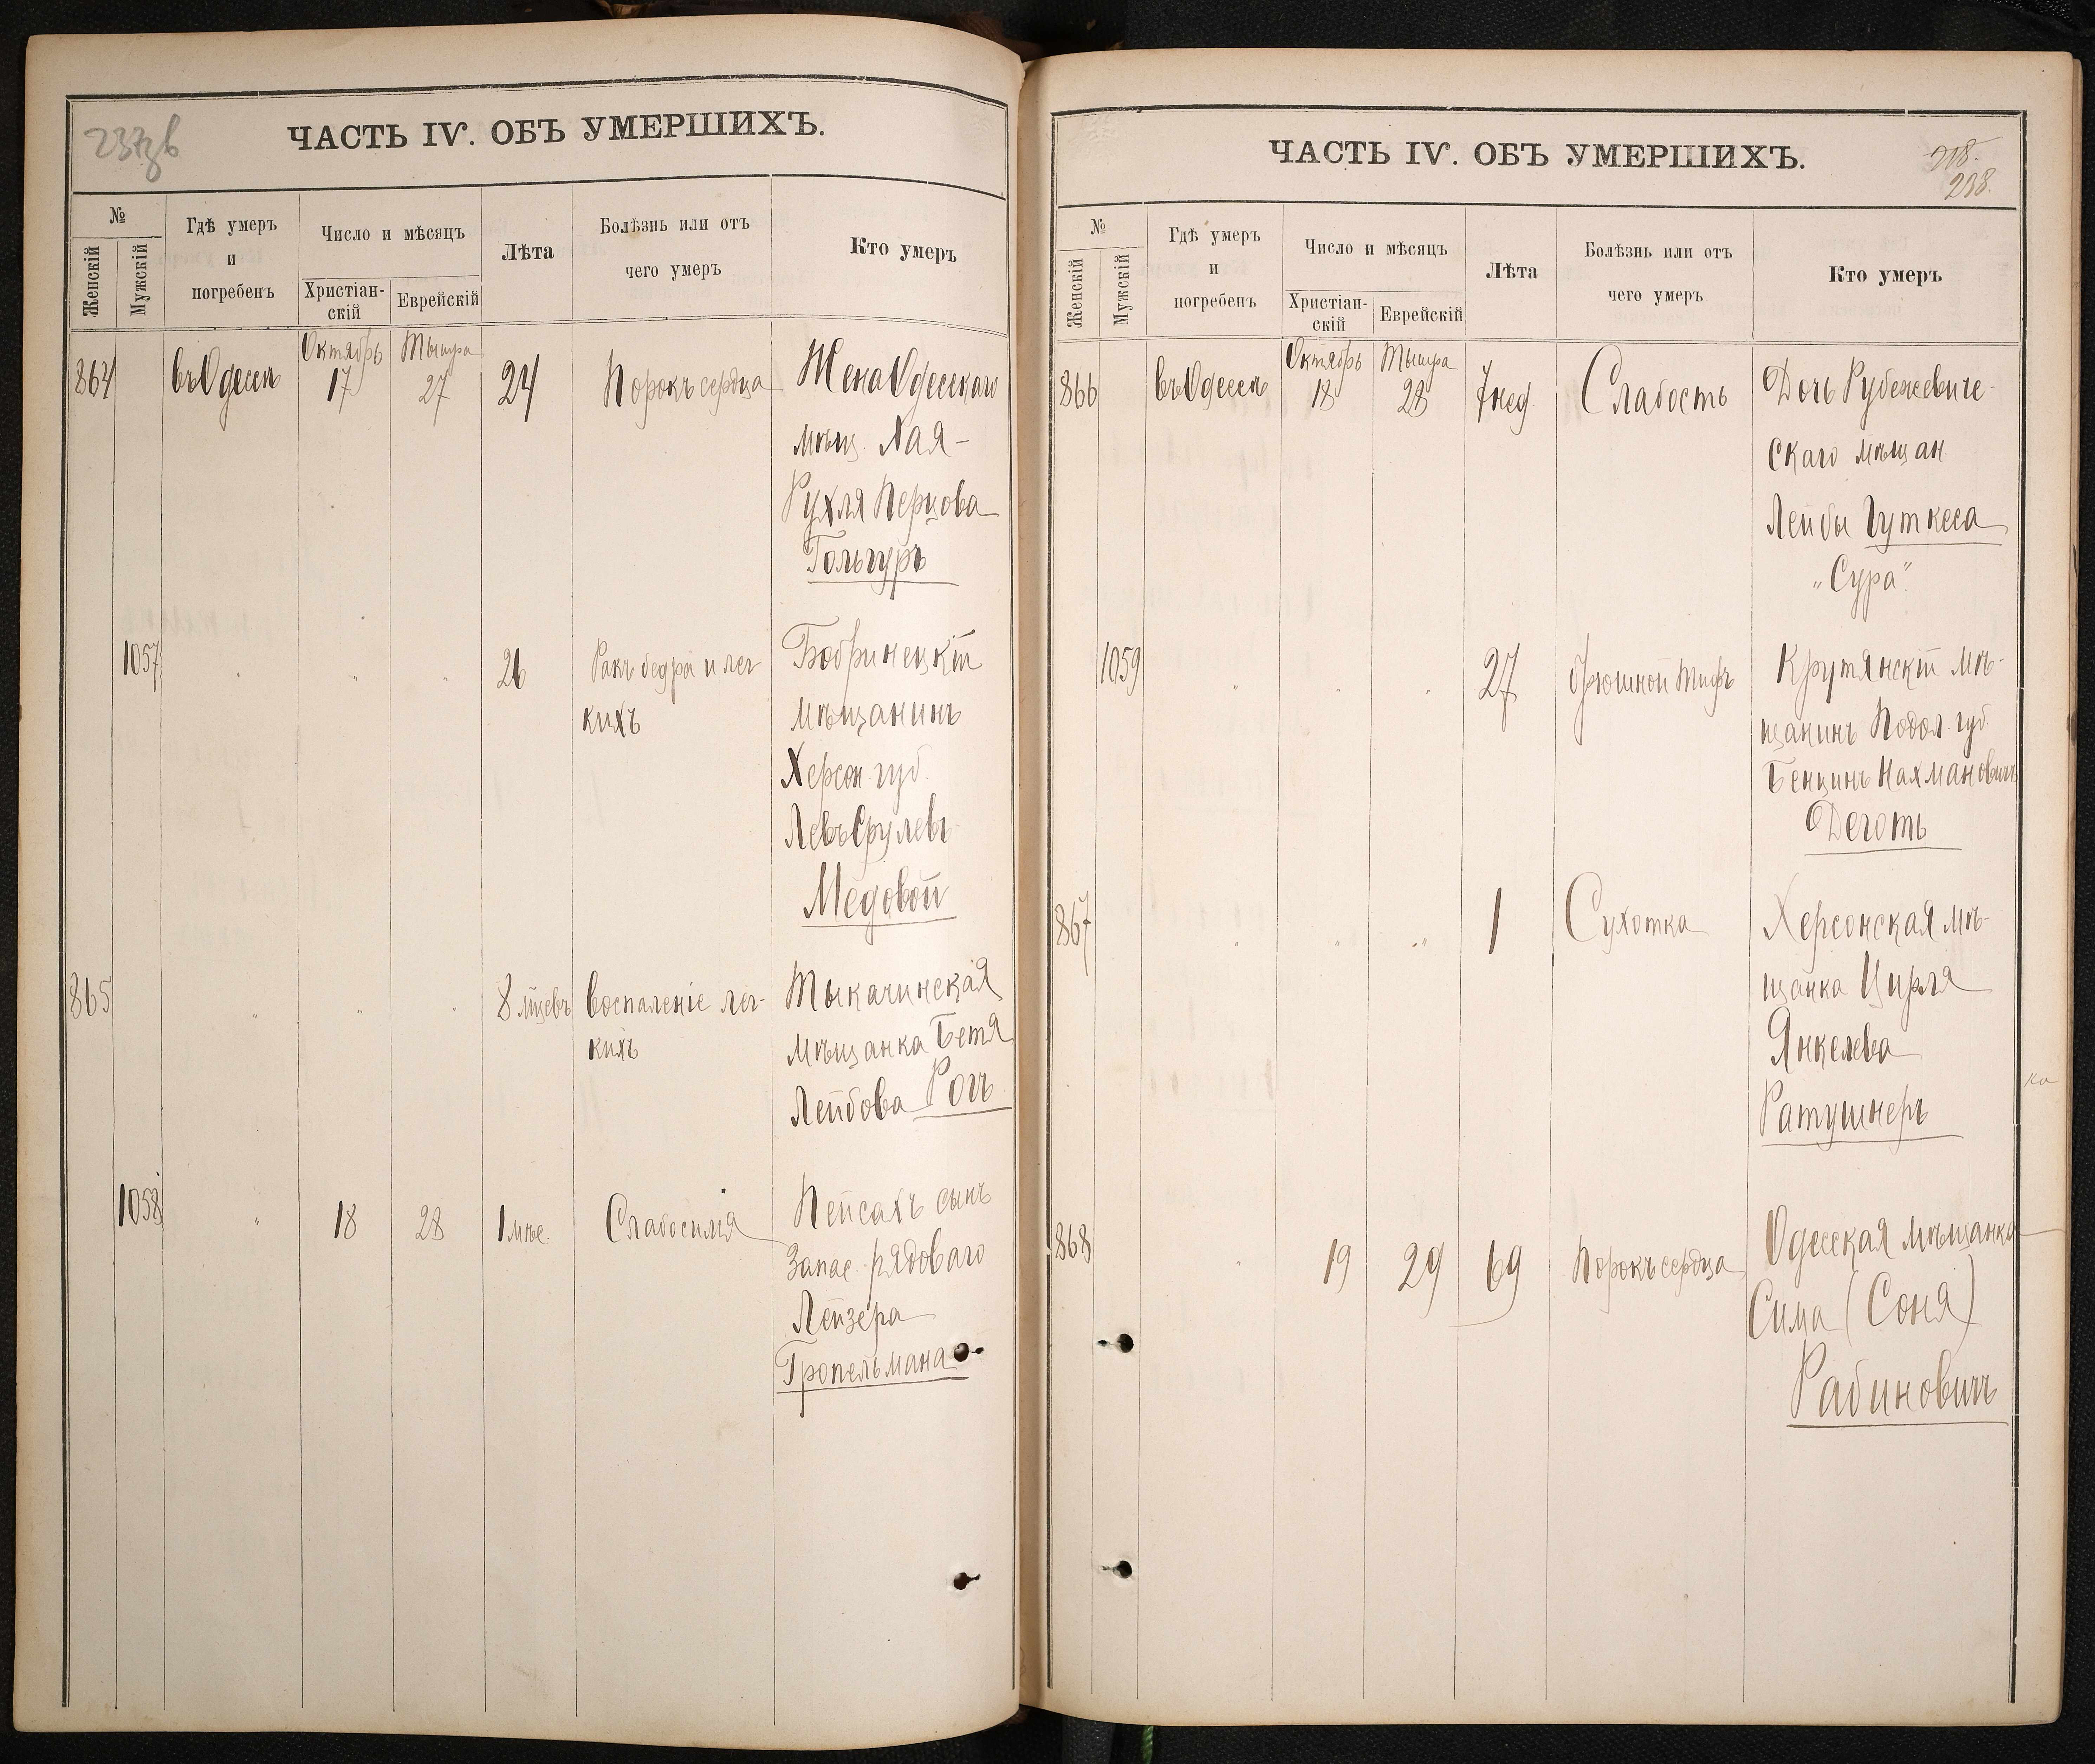 237об
ЧАСТЬ IV. ОБЪ УМЕРШИХЪ.
№
Женскій
Мужскій
Гдѣ умеръ
и
погребенъ
Число и мѣсяцъ
Христіан-
скій
Еврейскій
Лѣта
Болѣзнь или отъ
чего умеръ
Кто умеръ
Октябрь Тышра
864 въ Одессѣ 17 27 24 Порокъ сердца Жена Одесскаго
мѣщ. Хая-
Рухля Перцова
Гольгуръ
1057 " " " 26 Ракъ бедра и лег
кихъ
Бобринецкій
мѣщанинъ
Херсон. губ.
Левъ Срулевъ
Медовой
865 " " " 8 мцевъ воспаленіе лег-
кихъ
Тыкачинская
мѣщанка Бетя
Лейбова Рогъ
1058 " 18 28 1 мѣс. Слабосилія Пейсахъ сынъ
Запас. рядоваго
Лейзера
Гропельмана
ЧАСТЬ IV. ОБЪ УМЕРШИХЪ.
238.
№
Женскій
Мужскій
Гдѣ умеръ
и
погребенъ
Число и мѣсяцъ
Христіан-
скій
Еврейскій
Лѣта
Болѣзнь или отъ
чего умеръ
Кто умеръ
Октябрь Тышра
866 въ Одессѣ 18 28 7 нед. Слабость Дочь Рубежевиче-
скаго мѣщан.
Лейбы Гуткеса
„Сура"
1059 " " " 27 брюшной тифъ Крутянскій мѣ-
щанинъ Подол. губ.
Бенцинъ Нахмановичъ
Деготь
867 " " " 1 Сухотка Херсонская мѣ-
щанка Цирля
Янкелева
Ратушнеръ
ка
868 " 19 29 69 Порокъ сердца Одесская мѣщанка
Сима (Соня)
Рабиновичъ